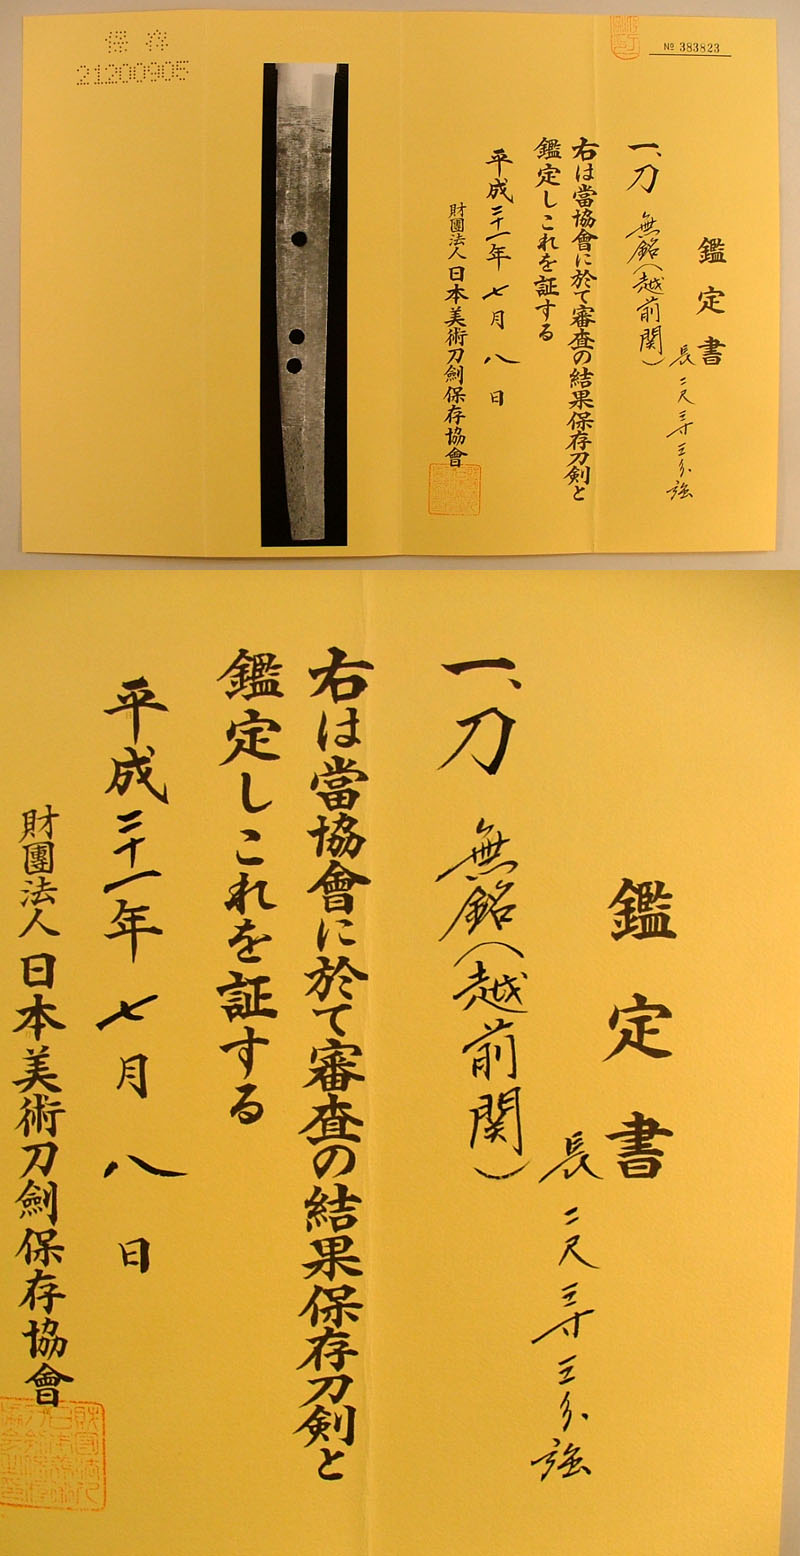 保存
21200905
№ 383823
鑑定書
一、刀 無銘(越前関)
長二尺三寸三分強
右は當協會に於て審査の結果保存刀剣と
鑑定しこれを証する
平成二十一年七月八日
財團法人日本美術刀劍保存協會
鑑定書
一、刀 無銘(越前関)
長二尺三寸三分強
右は當協會に於て審査の結果保存刀剣と
鑑定しこれを証する
平成二十一年七月八日
財團法人日本美術刀劍保存協會